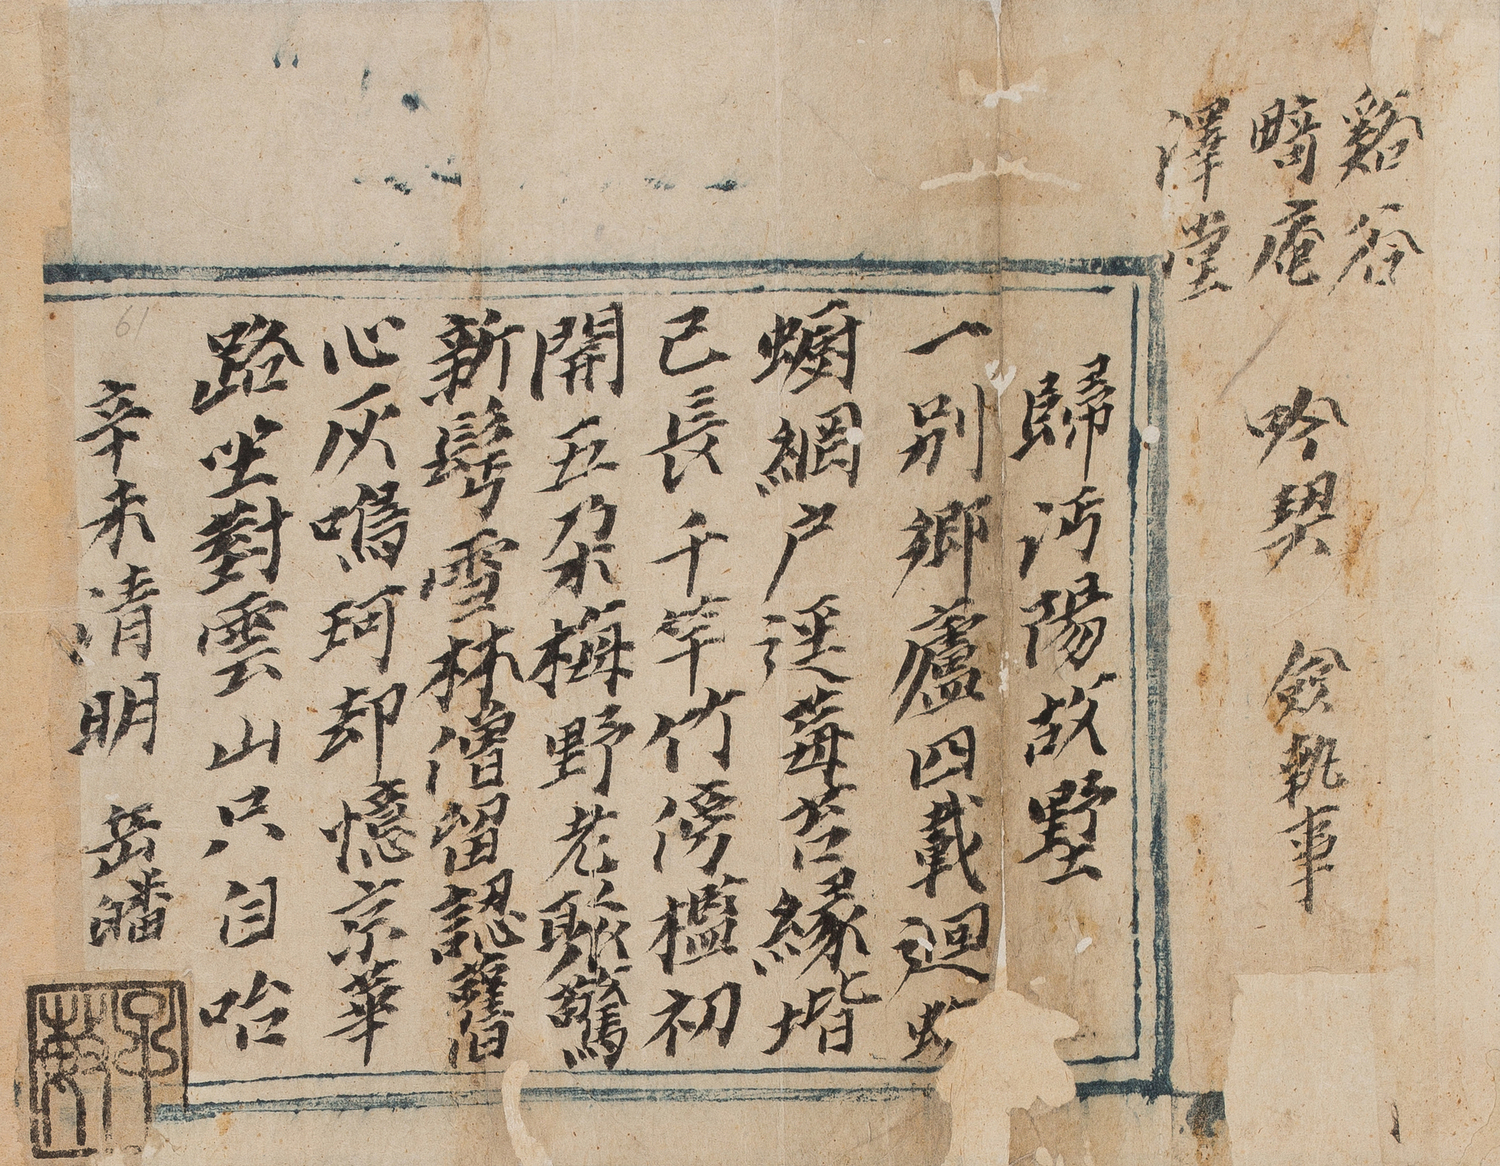 谿谷
畸庵　吟契　僉執事
澤堂
歸沔陽故墅
一別鄕廬四載迴
蟵網戶逕莓苔緣堦
已長千竿竹傍檻初
開五朶梅野老聚驚
新鬢雪林僧留認舊
心灰鳴珂却憶京華
路坐對雲山只自咍
辛未清明　岳皤
子敏
61